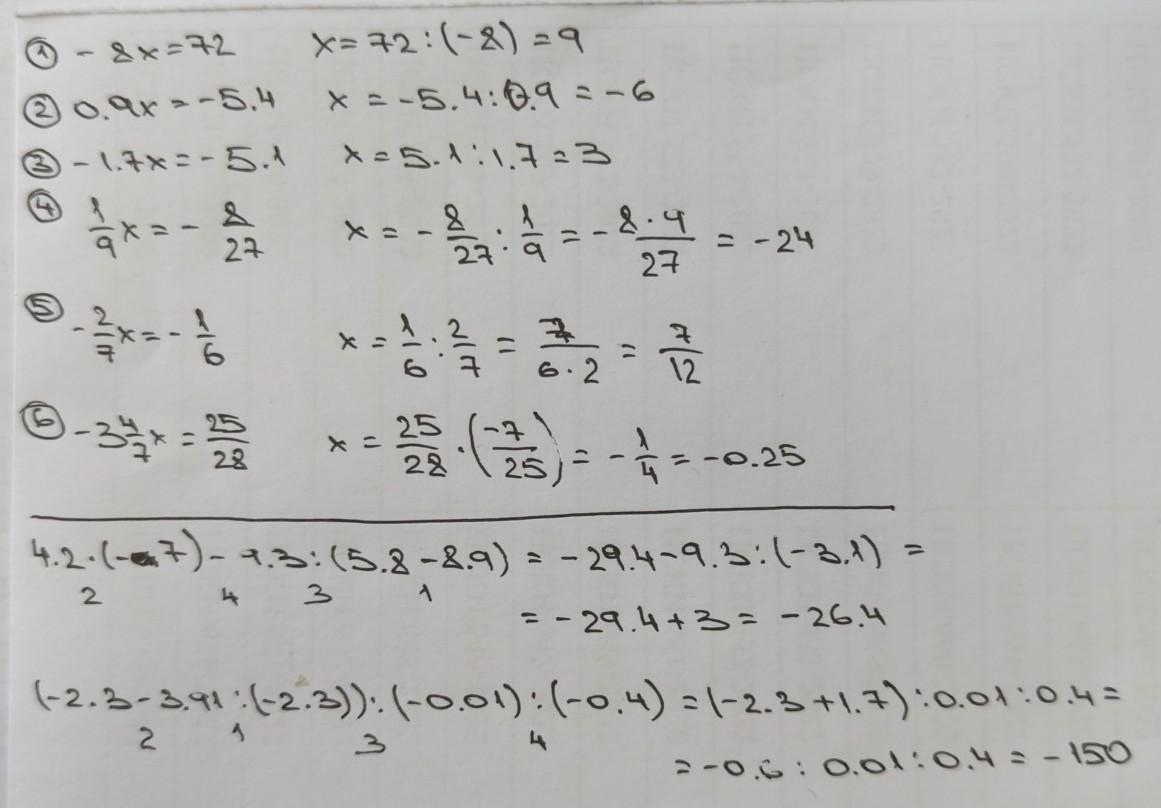 ① - 8x = 72 x = 72 : (-8) = 9
② 0.9x = -5.4 x = -5.4 : 0.9 = -6
③ -1.7x = -5.1 x = 5.1 : 1.7 = 3
④ 1/9 x = - 8/27 x = - 8/27 : 1/9 = - 8·9/27 = -24
⑤ - 2/7 x = - 1/6 x = 1/6 : 2/7 = 7/6·2 = 7/12
⑥ -3 4/7 x = 25/28 x = 25/28 · (-7/25) = - 1/4 = -0.25
4.2·(-7) - 9.3 : (5.8 - 8.9) = -29.4 - 9.3 : (-3.1) =
2 4 3 1
= -29.4 + 3 = -26.4
(-2.3 - 3.91 : (-2.3)) : (-0.01) : (-0.4) = (-2.3 + 1.7) : 0.01 : 0.4 =
2 1 3 4
= -0.6 : 0.01 : 0.4 = -150